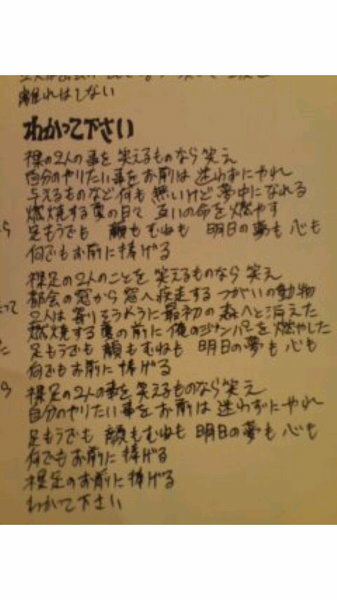 離れはしない
わかって下さい
裸の2人の事を 笑えるものなら笑え
自分のやりたい事をお前は 迷わずにやれ
与えるものなど何も 無いけど夢中になれる
燃焼する真の目で 互いの命を燃やす
足もうでも 顔もむねも 明日の夢も 心も
何でもお前に捧げる
裸足の2人のことを 笑えるものなら 笑え
都会の窓から 窓へ疾走する つがいの動物
2人は寄りそうように最初の森へと消えた
燃焼する真の前に 俺のジャンパーを 燃やした
足もうでも 顔もむねも 明日の夢も 心も
何でもお前に 捧げる
裸足の2人の事を 笑えるものなら笑え
自分のやりたい事をお前は 迷わずにやれ
足もうでも 顔もむねも 明日の夢も 心も
何でもお前に 捧げる
裸足のお前に捧げる
わかて下さい